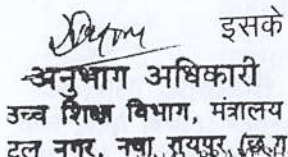 इसके
अनुभाग अधिकारी
उच्च शिक्षा विभाग, मंत्रालय
टल नगर, नवा रायपुर (छ.ग